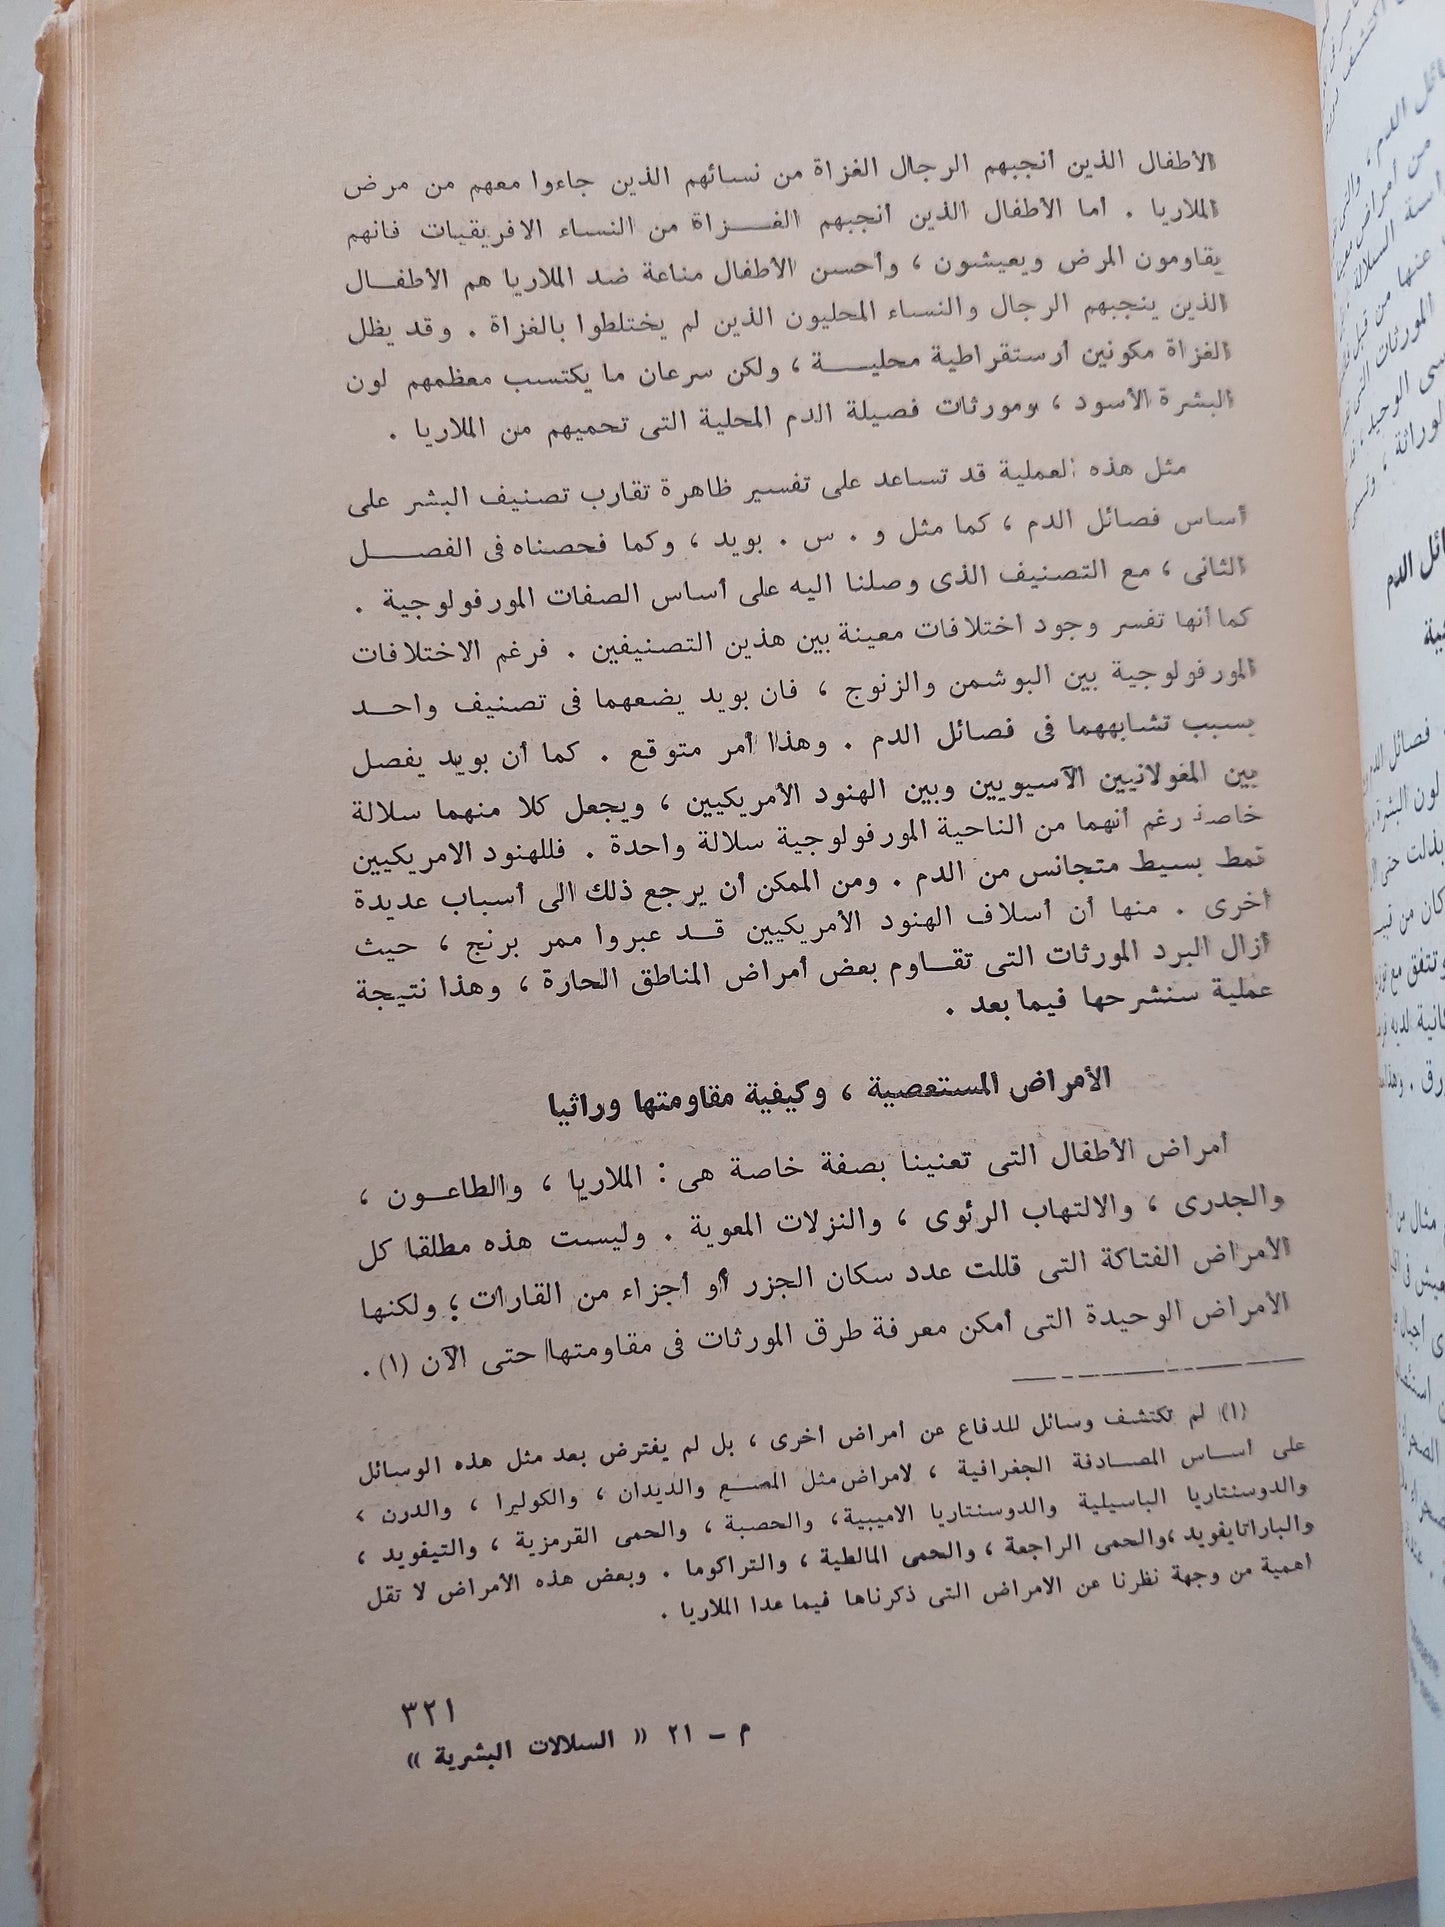 الأطفال الذين أنجبهم الرجال الغزاة من نسائهم الذين جاءوا معهم من مرض
الملاريا . أما الأطفال الذين أنجبهم الغـــزاة من النساء الافريقيات فانهم
يقاومون المرض ويعيشون ، وأحسن الأطفال مناعة ضد الملاريا هم الأطفــال
الذين ينجبهم الرجال والنساء المحليون الذين لم يختلطوا بالغزاة . وقد يظل
الغزاة مكونين أرستقراطية محليـــة ، ولكن سرعان ما يكتسب معظمهم لون
البشرة الأسود ، ومورثات فصيلة الدم المحلية التى تحميهم من الملاريا .
مثل هذه العملية قد تساعد على تفسير ظاهرة تقارب تصنيف البشر على
أساس فصائل الدم ، كما مثل و . س . بويد ، وكما فحصناه فى الفصـــل
الثانى ، مع التصنيف الذى وصلنا اليه على أساس الصفات المورفولوجية .
كما أنها تفسر وجود اختلافات معينة بين هذين التصنيفين . فرغم الاختلافات
المورفولوجية بين البوشمن والزنوج ، فان بويد يضعهما فى تصنيف واحــد
بسبب تشابههما فى فصائل الدم . وهذا أمر متوقع . كما أن بويد يفصل
بين المغولانيين الآسيويين وبين الهنود الأمريكيين ، ويجعل كلا منهما سلالة
خاصة رغم أنهما من الناحية المورفولوجية سلالة واحدة . فللهنود الامريكيين
نمط بسيط متجانس من الدم . ومن الممكن أن يرجع ذلك الى أسباب عديدة
أخرى . منها أن أسلاف الهنود الأمريكيين قــد عبروا ممر برنج ، حيث
أزال البرد المورثات التى تقــاوم بعض أمراض المناطق الحارة ، وهذا نتيجة
عملية سنشرحها فيما بعد .
الأمراض المستعصية ، وكيفية مقاومتها وراثيا
أمراض الأطفال التى تعنينا بصفة خاصة هى : الملاريا ، والطاعــون ،
والجدرى ، والالتهاب الرئوى ، والنزلات المعوية . وليست هذه مطلقا كل
الأمراض الفتاكة التى قللت عدد سكان الجزر أو أجزاء من القارات ؛ ولكنها
الأمراض الوحيدة التى أمكن معرفة طرق المورثات فى مقاومتها حتى الآن (١) .
(١) لم تكتشف وسائل للدفاع عن أمراض أخرى ، بل لم يفترض بعد مثل هذه الوسائل
على أســاس المصــادفة الجغرافية ، لامراض مثل والديدان ، والكوليرا ، والدرن ،
والدوسنتاريا الباسيلية والدوسنتاريا الاميبية، والحصبة ، والحمى القرمزية ، والتيفويد ،
والباراتايفويد ،والحمى الراجعة ، والحمى المالطية ، والتراكوما . وبعض هذه الأمراض لا تقل
أهمية من وجهة نظرنا عن الامراض التى ذكرناها فيما عدا الملاريا .
٣٢١
م – ٢١ « السلالات البشرية »